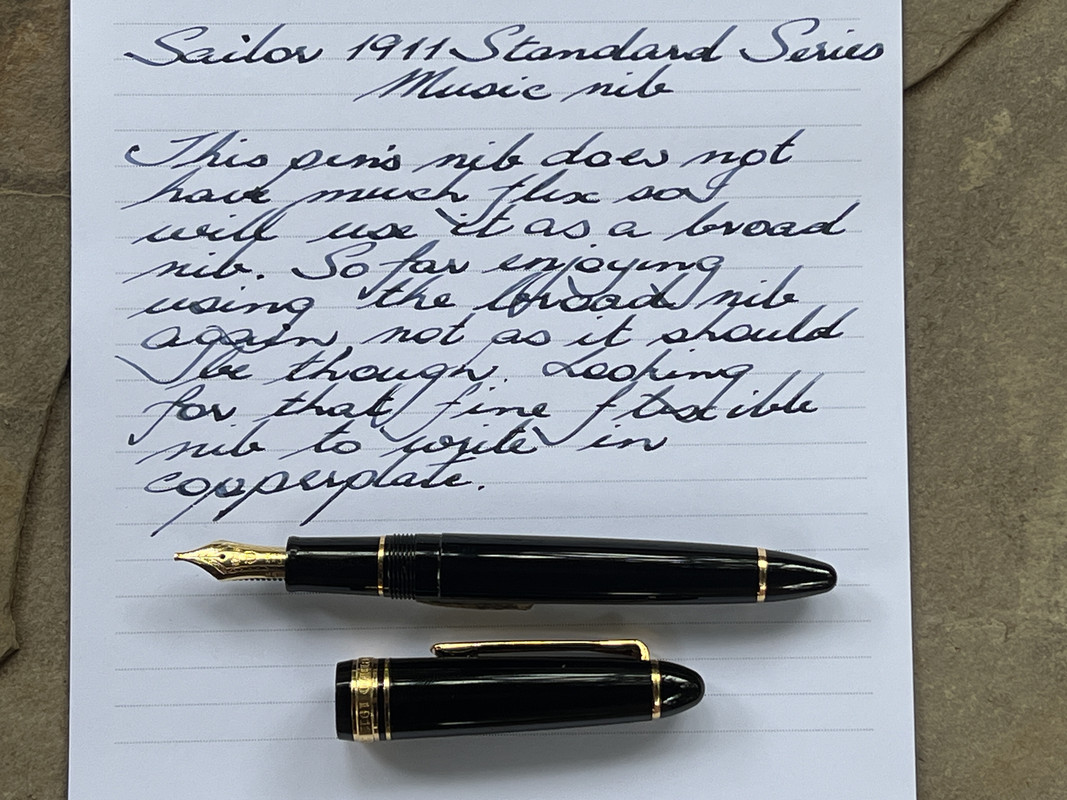 Sailor 1911 Standard Series
Music nib
This pen's nib does not
have much flex so I
will use it as a broad
nib. So far enjoying
using the broad nib
again not as it should
be though. Looking
for that fine flexible
nib to write in
copperplate.